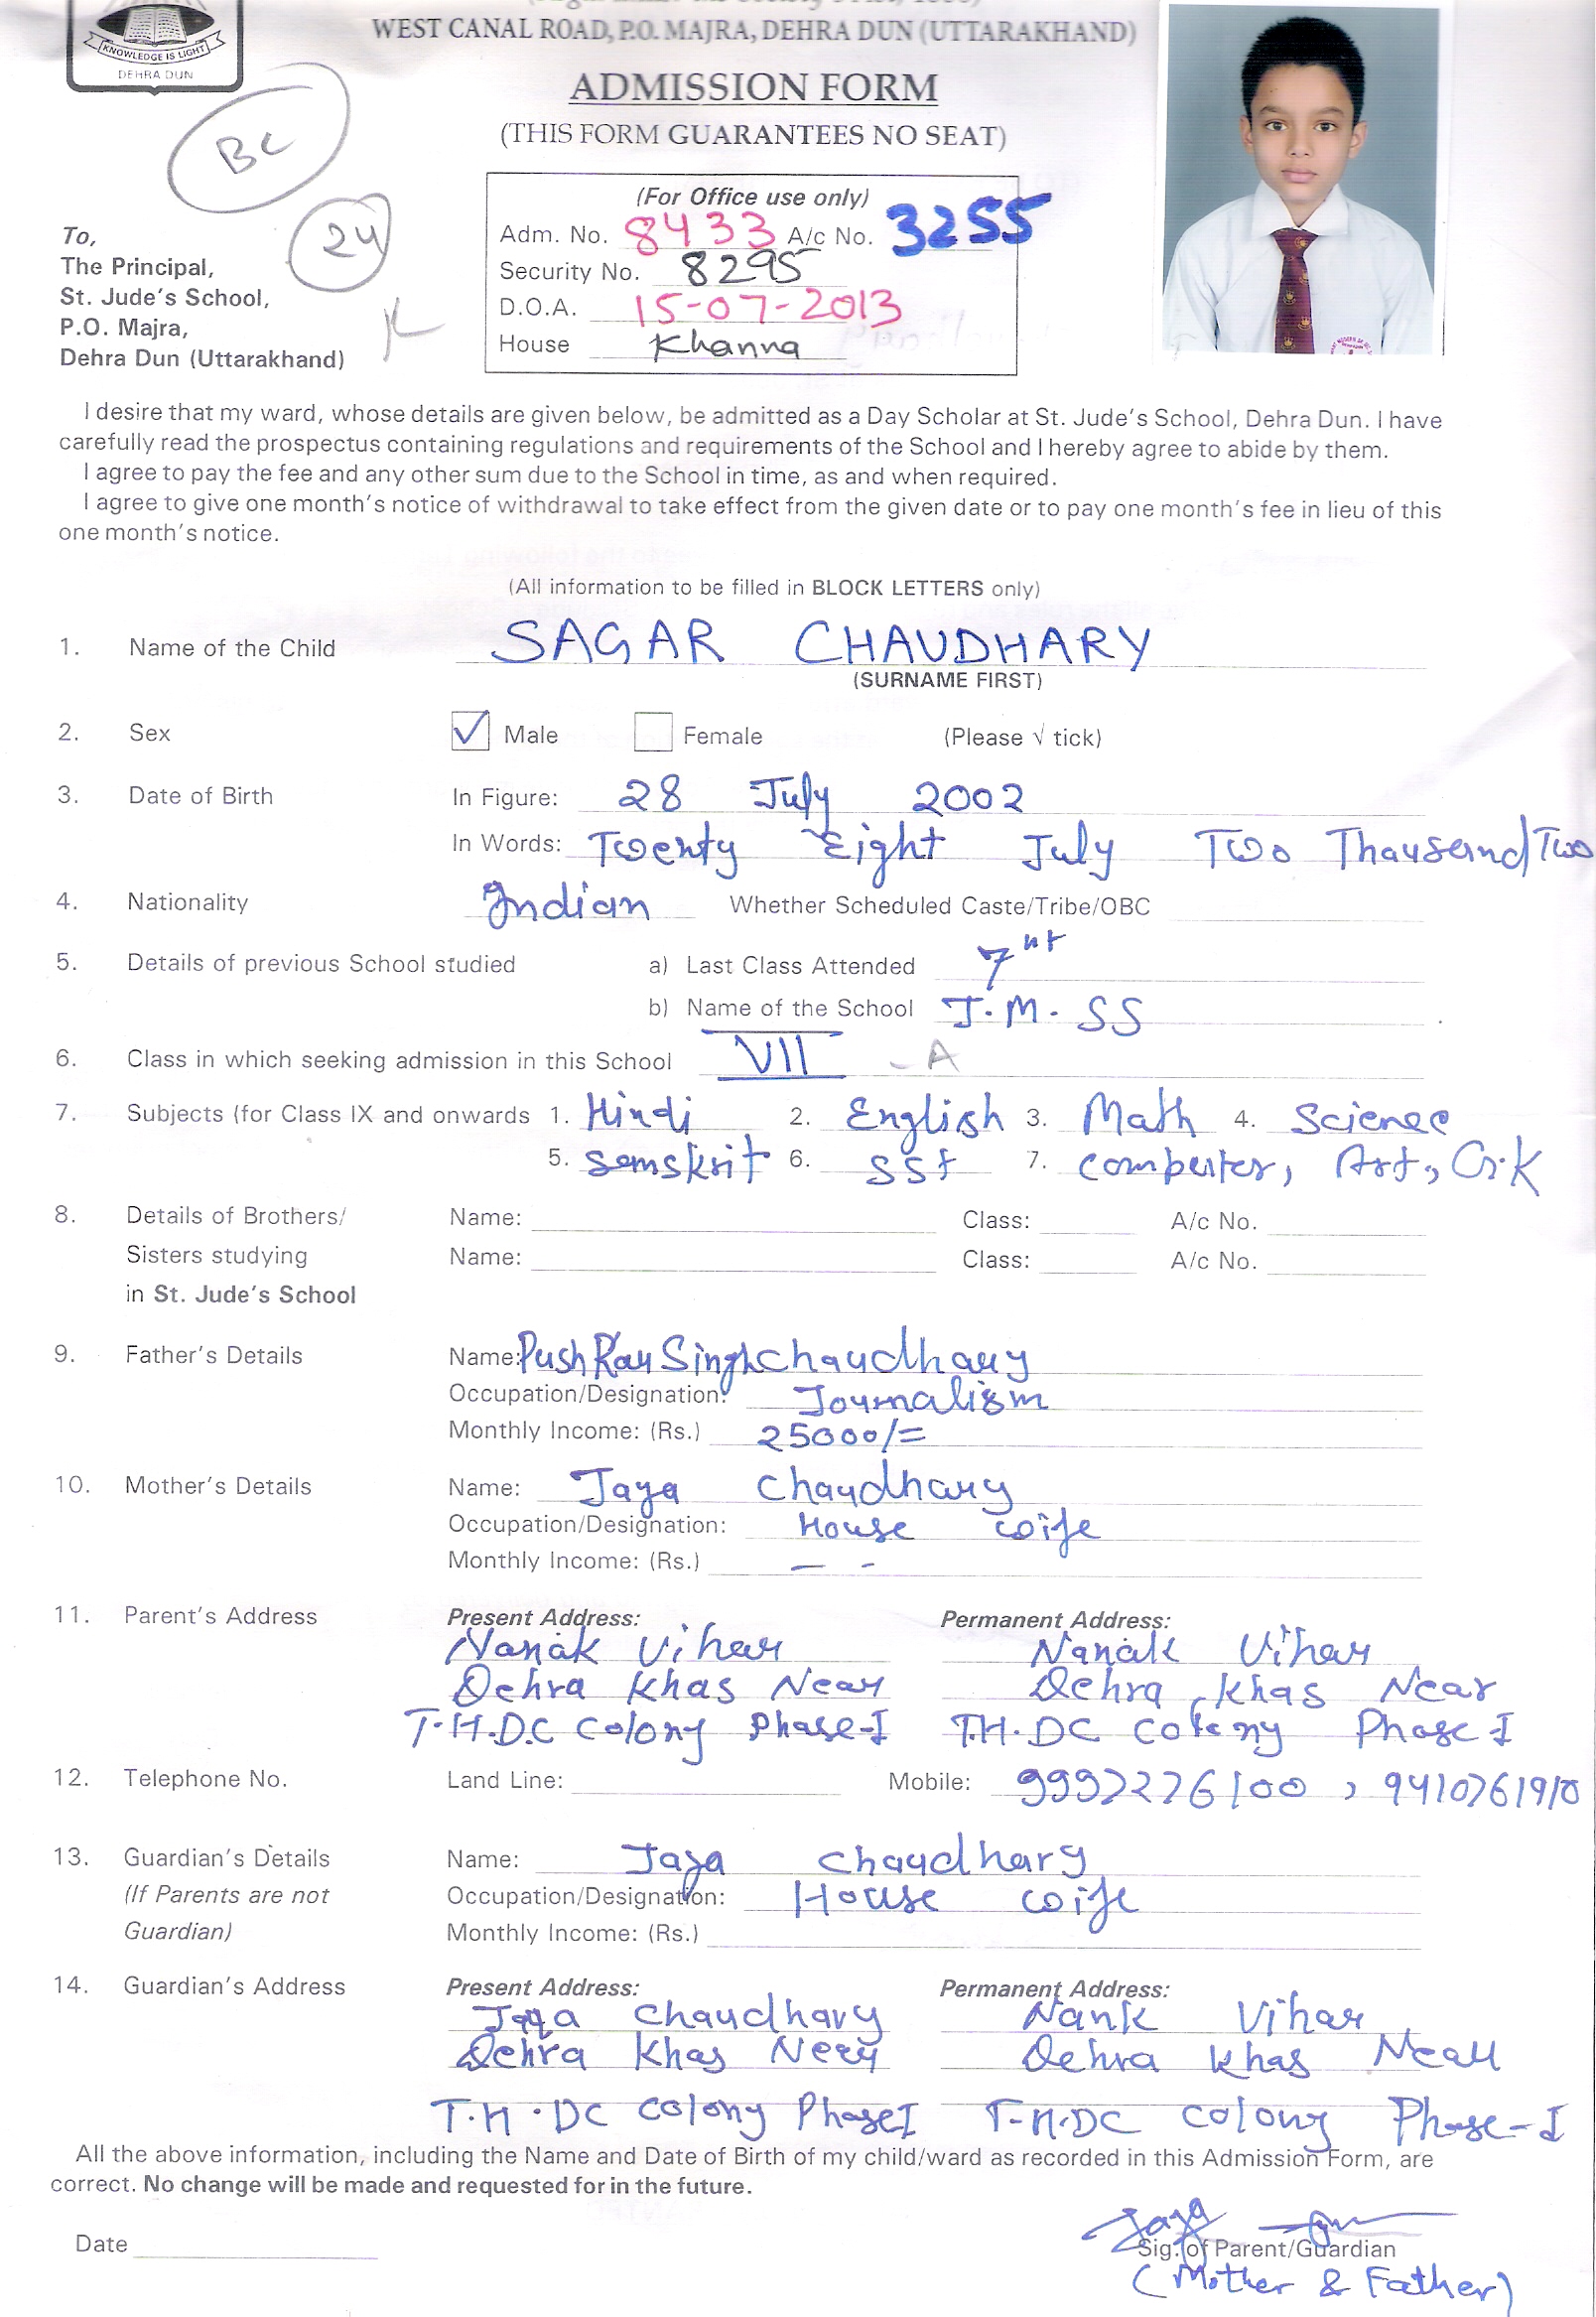 WEST CANAL ROAD, P.O. MAJRA, DEHRA DUN (UTTARAKHAND)
KNOWLEDGE IS LIGHT
DEHRA DUN
ADMISSION FORM
(THIS FORM GUARANTEES NO SEAT)
BC
24
(For Office use only)
Adm. No. 8433 A/c No. 3255
Security No. 8295
D.O.A. 15-07-2013
House Khanna
To,
The Principal,
St. Jude's School,
P.O. Majra,
Dehra Dun (Uttarakhand)
I desire that my ward, whose details are given below, be admitted as a Day Scholar at St. Jude's School, Dehra Dun. I have
carefully read the prospectus containing regulations and requirements of the School and I hereby agree to abide by them.
I agree to pay the fee and any other sum due to the School in time, as and when required.
I agree to give one month's notice of withdrawal to take effect from the given date or to pay one month's fee in lieu of this
one month's notice.
(All information to be filled in BLOCK LETTERS only)
1. Name of the Child SAGAR CHAUDHARY
(SURNAME FIRST)
2. Sex ✓ Male Female (Please √ tick)
3. Date of Birth In Figure: 28 July 2002
In Words: Twenty Eight July Two Thausand/Two
4. Nationality Indian Whether Scheduled Caste/Tribe/OBC
5. Details of previous School studied a) Last Class Attended 7
b) Name of the School J.M. SS
6. Class in which seeking admission in this School VII - A
7. Subjects (for Class IX and onwards 1. Hindi 2. English 3. Math 4. Science
5. Samskrit 6. SSt 7. Computer, Art, G.K
8. Details of Brothers/ Name: Class: A/c No.
Sisters studying Name: Class: A/c No.
in St. Jude's School
9. Father's Details Name: Singh Chaudhary
Occupation/Designation: Journalism
Monthly Income: (Rs.) 25000/=
10. Mother's Details Name: Jaya Chaudhary
Occupation/Designation: House wife
Monthly Income: (Rs.) - -
11. Parent's Address Present Address: Permanent Address:
Nanak Vihar Nanak Vihar
Dehra Khas Near Dehra Khas Near
T.H.D.C Colony Phase-I T.H.DC Colony Phase I
12. Telephone No. Land Line: Mobile: 9997276100 , 9410761910
13. Guardian's Details Name: Jaya Chaudhary
(If Parents are not Occupation/Designation: House wife
Guardian) Monthly Income: (Rs.)
14. Guardian's Address Present Address: Permanent Address:
Jaya Chaudhary Nank Vihar
Dehra Khas Near Dehra Khas Near
T.H.DC Colony Phase I T-H.DC Colony Phase-I
All the above information, including the Name and Date of Birth of my child/ward as recorded in this Admission Form, are
correct. No change will be made and requested for in the future.
Jaya
Date Sig. of Parent/Guardian
(Mother & Father)